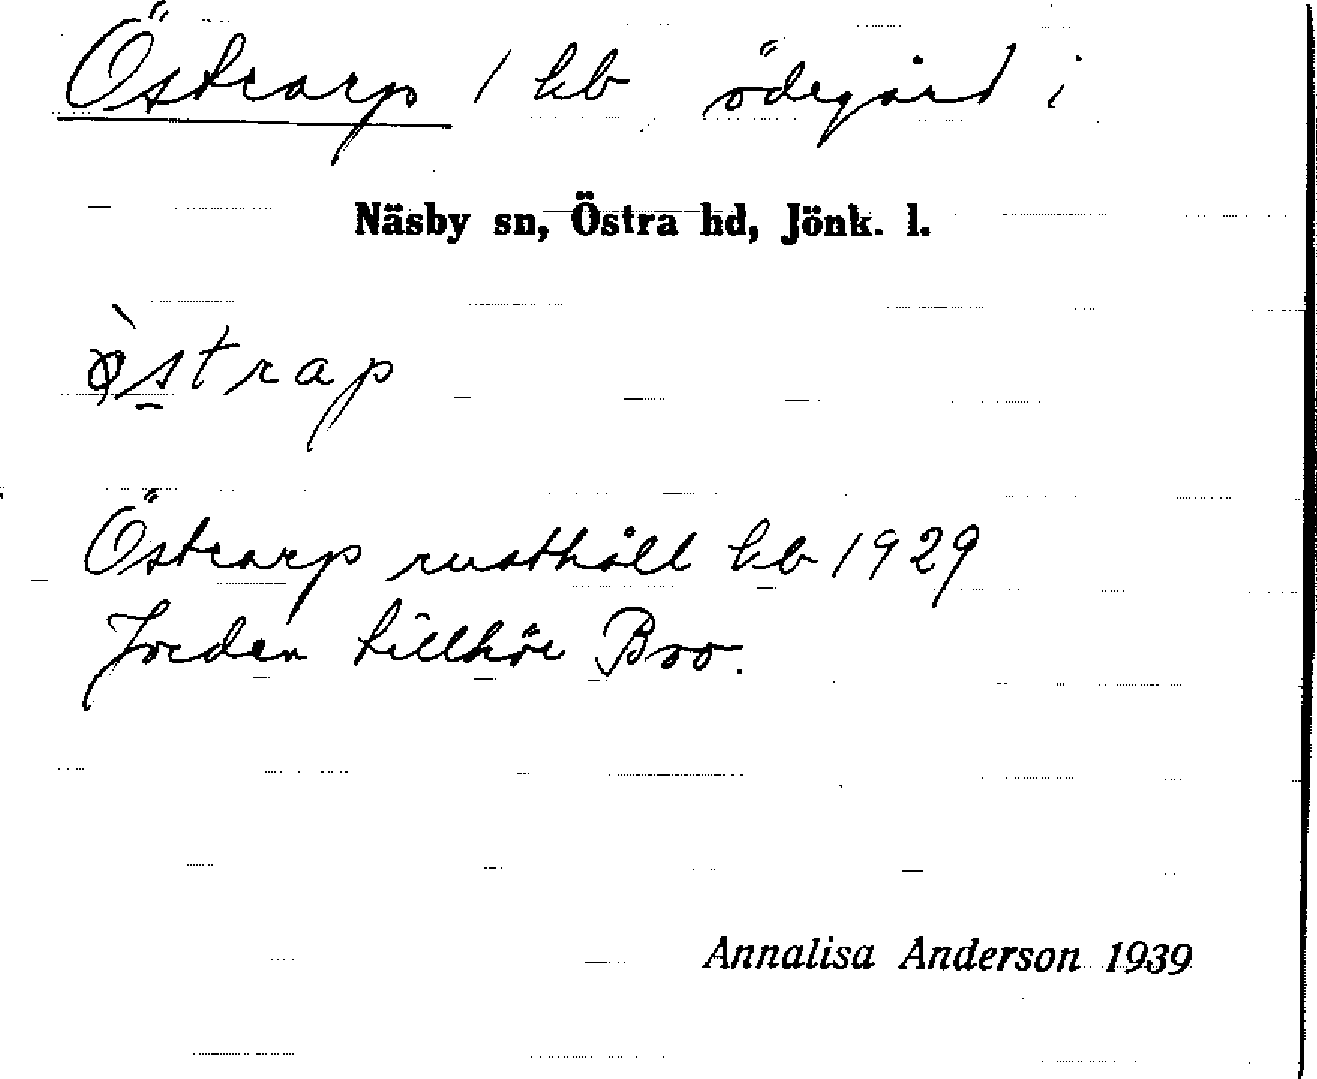 Östrarp / kb ödegård i
Näsby sn, Östra hd, Jönk. l.
östrap
Östrarp rusthåll kb 1929
Jorden tillhör Bro.
Annalisa Anderson 1939